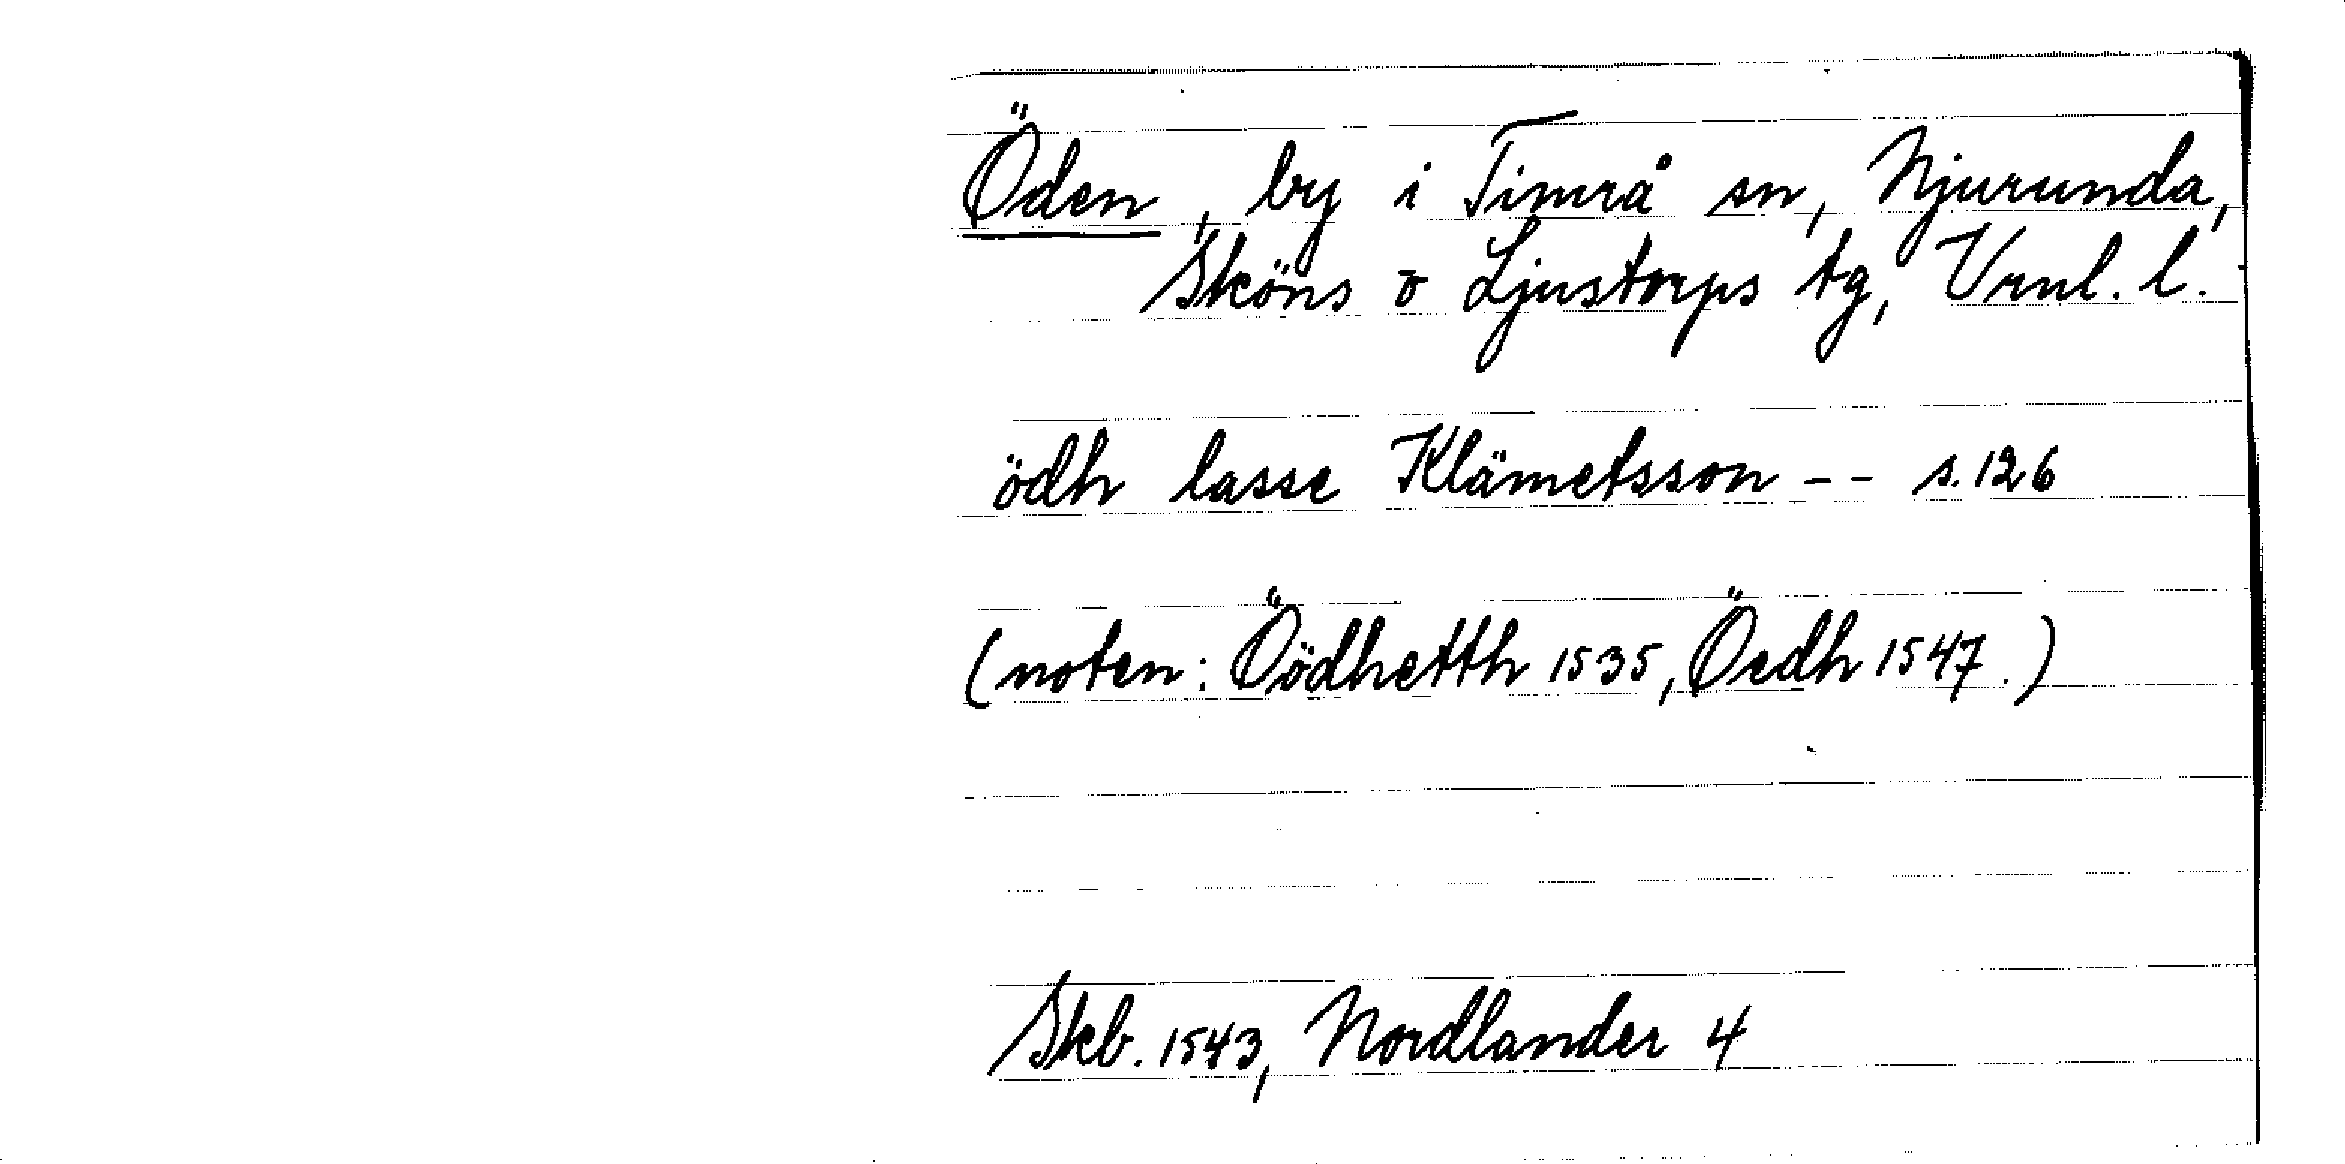 Öden, by i Timrå sn, Njurunda,
Sköns o Ljustorps tg, Vrnl. l.
ödh lasse Klämetsson -- s. 126
(noten: Öödhetth 1535, Öedh 1547.)
Skb. 1543, Nordlander 4